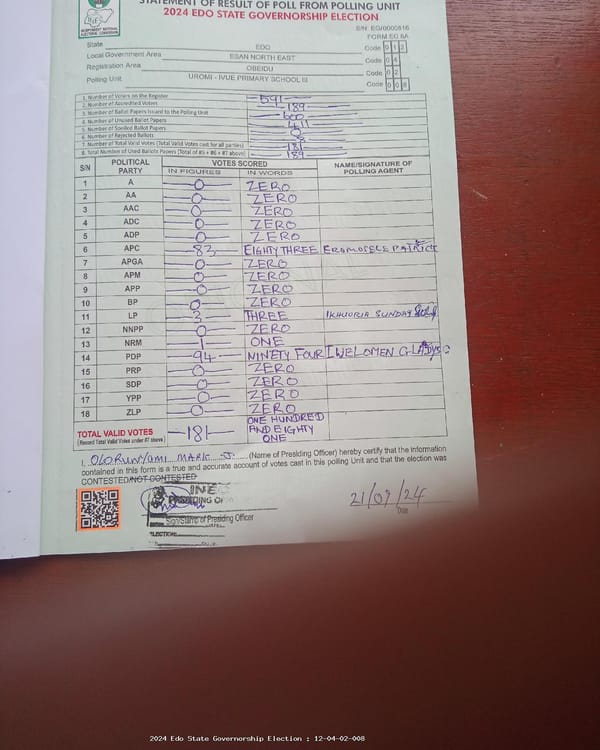 STATEMENT OF RESULT OF POLL FROM POLLING UNIT
2024 EDO STATE GOVERNORSHIP ELECTION
INDEPENDENT NATIONAL ELECTORAL COMMISSION
FORM EC 8A
State EDO Code 0 1 2
Local Government Area ESAN NORTH EAST Code 0 4
Registration Area OBEIDU Code 0 2
Polling Unit UROMI - IVUE PRIMARY SCHOOL III Code 0 0 8
1. Number of Voters on the Register 591
2. Number of Accredited Voters 189
3. Number of Ballot Papers Issued to the Polling Unit 600
4. Number of Unused Ballot Papers 411
5. Number of Spoiled Ballot Papers 0
6. Number of Rejected Ballots 8
7. Number of Total Valid Votes (Total Valid Votes cast for all parties) 181
8. Total Number of Used Ballot Papers (Total of #5 + #6 + #7 above) 189
S/N POLITICAL PARTY VOTES SCORED NAME/SIGNATURE OF POLLING AGENT
IN FIGURES IN WORDS
1 A 0 ZERO
2 AA 0 ZERO
3 AAC 0 ZERO
4 ADC 0 ZERO
5 ADP 0 ZERO
6 APC 83 EIGHTY THREE EROMOSELE PATRICK
7 APGA 0 ZERO
8 APM 0 ZERO
9 APP 0 ZERO
10 BP 0 ZERO
11 LP 3 THREE IKHUORIA SUNDAY
12 NNPP 0 ZERO
13 NRM 1 ONE
14 PDP 94 NINETY FOUR IWELOMEN GLADYS
15 PRP 0 ZERO
16 SDP 0 ZERO
17 YPP 0 ZERO
18 ZLP 0 ZERO
TOTAL VALID VOTES 181 ONE HUNDRED AND EIGHTY ONE
(Record Total Valid Votes under #7 above)
I, OLORUNYOMI MARK J. (Name of Presiding Officer) hereby certify that the information
contained in this form is a true and accurate account of votes cast in this polling Unit and that the election was
CONTESTED/NOT CONTESTED
INEC
PRESIDING OF
21/09/24
Sign/Stamp of Presiding Officer
Date
2024 Edo State Governorship Election : 12-04-02-008